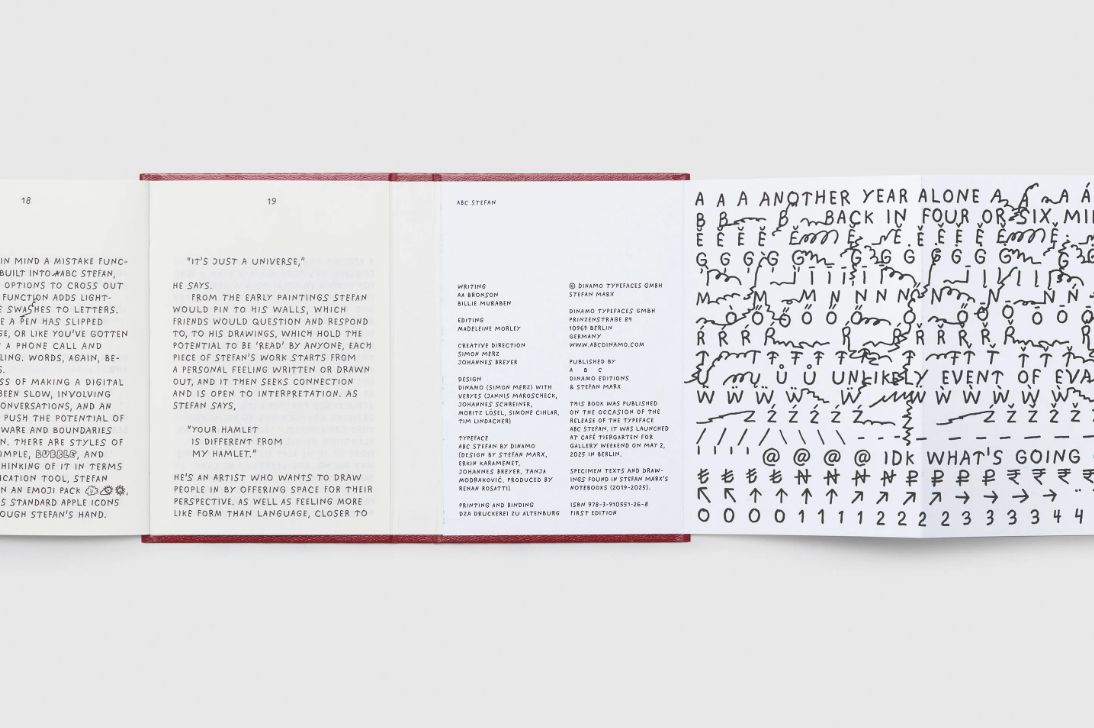 18
IN MIND A MISTAKE FUNC-
BUILT INTO ABC STEFAN,
OPTIONS TO CROSS OUT
FUNCTION ADDS LIGHT-
SWASHES TO LETTERS.
A PEN HAS SLIPPED
OR LIKE YOU'VE GOTTEN
A PHONE CALL AND
LING. WORDS, AGAIN, BE-
SS OF MAKING A DIGITAL
BEEN SLOW, INVOLVING
ONVERSATIONS, AND AN
PUSH THE POTENTIAL OF
WARE AND BOUNDARIES
N. THERE ARE STYLES OF
IMPLE, BUBBLE, AND
HINKING OF IT IN TERMS
ICATION TOOL, STEFAN
AN EMOJI PACK
S STANDARD APPLE ICONS
OUGH STEFAN'S HAND.
19
"IT'S JUST A UNIVERSE,"
HE SAYS.
FROM THE EARLY PAINTINGS STEFAN
WOULD PIN TO HIS WALLS, WHICH
FRIENDS WOULD QUESTION AND RESPOND
TO, TO HIS DRAWINGS, WHICH HOLD THE
POTENTIAL TO BE 'READ' BY ANYONE, EACH
PIECE OF STEFAN'S WORK STARTS FROM
A PERSONAL FEELING WRITTEN OR DRAWN
OUT, AND IT THEN SEEKS CONNECTION
AND IS OPEN TO INTERPRETATION. AS
STEFAN SAYS,
"YOUR HAMLET
IS DIFFERENT FROM
MY HAMLET."
HE'S AN ARTIST WHO WANTS TO DRAW
PEOPLE IN BY OFFERING SPACE FOR THEIR
PERSPECTIVE. AS WELL AS FEELING MORE
LIKE FORM THAN LANGUAGE, CLOSER TO
ABC STEFAN
WRITING
AA BRONSON
BILLIE MURABEN
EDITING
MADELEINE MORLEY
CREATIVE DIRECTION
SIMON MERZ
JOHANNES BREYER
DESIGN
DINAMO (SIMON MERZ) WITH
VERYES (JANNIS MAROSCHECK,
JOHANNES SCHREINER,
MORITZ LÖSEL, SIMONE CIHLAR,
TIM LINDACHER)
TYPEFACE
ABC STEFAN BY DINAMO
(DESIGN BY STEFAN MARX,
ERKIN KARAMEMET,
JOHANNES BREYER, TANJA
MODRAKOVIĆ, PRODUCED BY
RENAN ROSATTI)
PRINTING AND BINDING
DZA DRUCKEREI ZU ALTENBURG
© DINAMO TYPEFACES GMBH
STEFAN MARX
DINAMO TYPEFACES GMBH
PRINZENSTRAßE 89
10969 BERLIN
GERMANY
WWW.ABCDINAMO.COM
PUBLISHED BY
A B C
DINAMO EDITIONS
& STEFAN MARX
THIS BOOK WAS PUBLISHED
ON THE OCCASION OF THE
RELEASE OF THE TYPEFACE
ABC STEFAN. IT WAS LAUNCHED
AT CAFÉ TIERGARTEN FOR
GALLERY WEEKEND ON MAY 2,
2025 IN BERLIN.
SPECIMEN TEXTS AND DRAW-
INGS FOUND IN STEFAN MARX'S
NOTEBOOKS (2019-2023).
ISBN 978-3-910551-26-8
FIRST EDITION
A A A ANOTHER YEAR ALONE A A A Á
B B B BACK IN FOUR OR SIX MIN
UNLIKELY EVENT OF EVA
/ / / / \ \ \ \ \ \ - - -
@ @ @ @ IDK WHAT'S GOING
↖ ↖ ↖
0 0 0 0 1 1 1 1 2 2 2 2 3 3 3 3 4 4